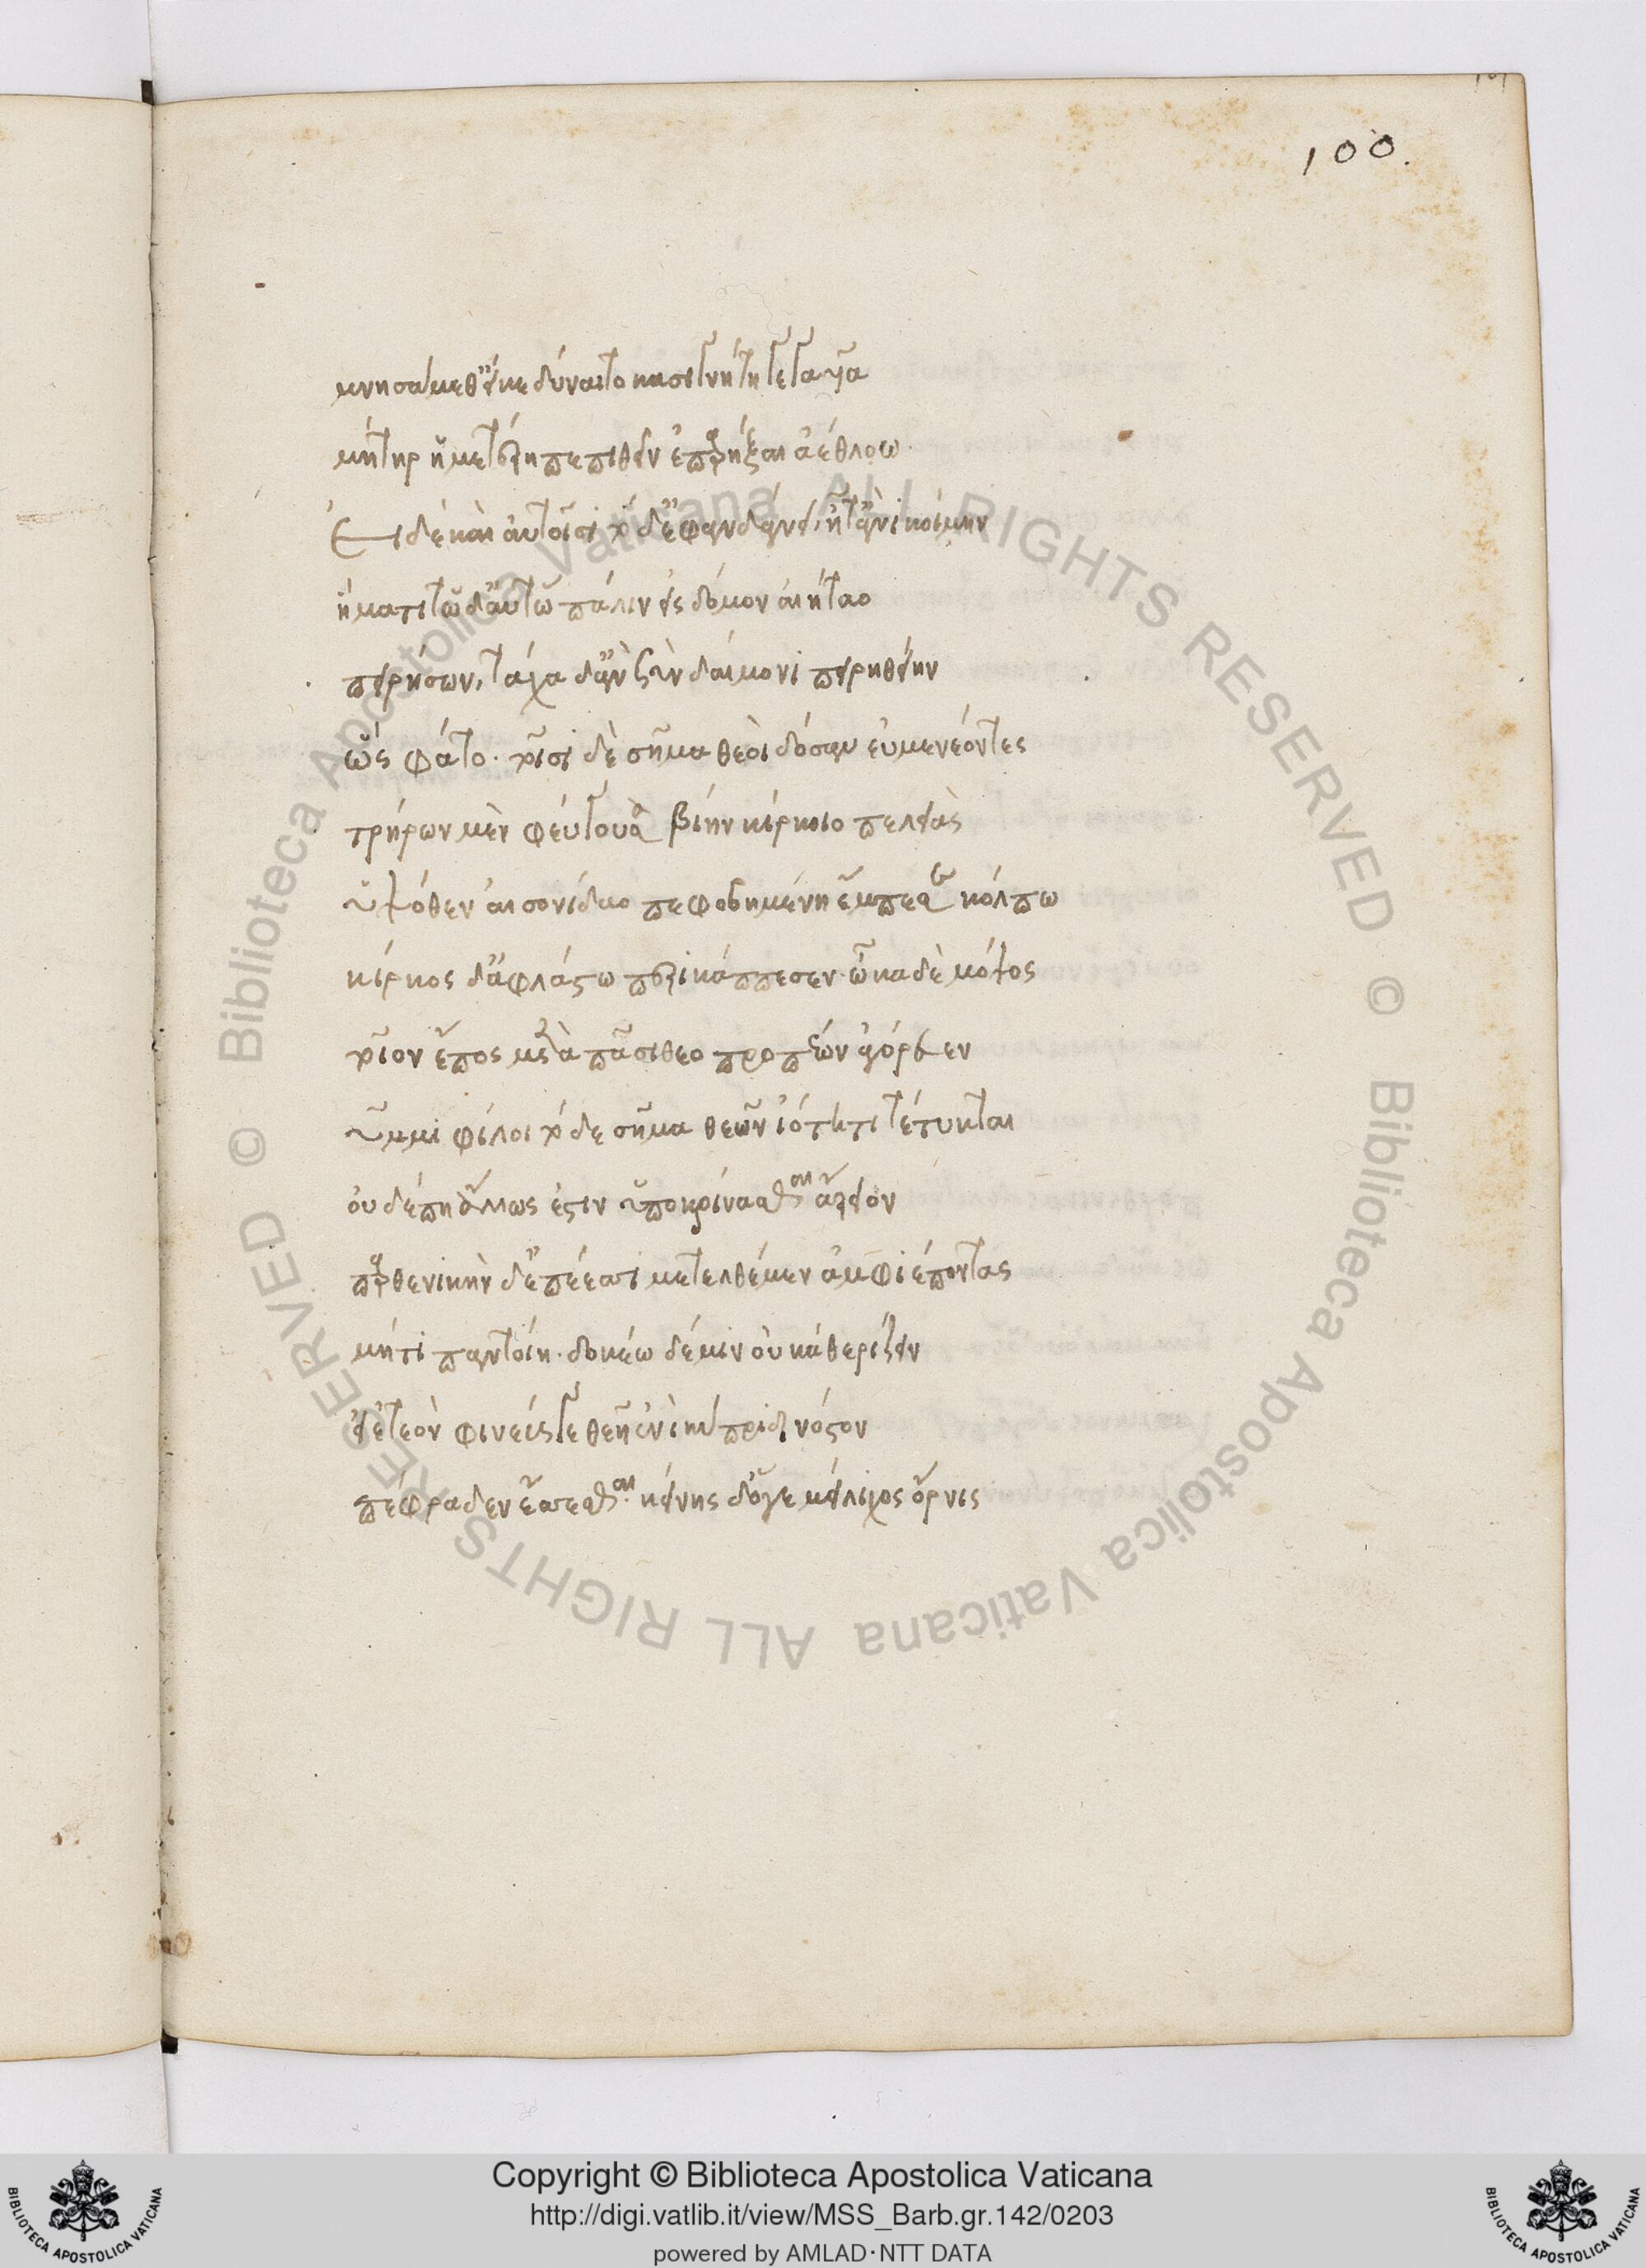 100.
μνησαίμεθ' εἴ κε δύναιτο κασιγνήτη γεγαυῖα
μήτηρ ἡμετέρη πεπιθεῖν ἐπαρῆξαι ἀέθλοω
Εἰ δὲ καὶ αὐτοῖσι τόδ' ἐφανδάνει, ἦτ' ἂν ἱκοίμην
ἤματι τῶδ' αὐτῶ πάλιν εἰς δόμον αἰήταο
πειρήσων, τάχα δ' ἂν σὺν δαίμονι πειρηθείην
ὣς φάτο. τοῖσι δὲ σῆμα θεοὶ δόσαν εὐμενέοντες
τρήρων μὲν φεύγουσα βίην κίρκοιο πελειὰς
ὑψόθεν αἰσονίδαο πεφοβημένη ἔμπεσε κόλπω
κίρκος δ' ἀφλάστω περικάππεσεν. ὦκα δὲ μόψος
τοῖον ἔπος μετὰ πᾶσι θεοπροπέων ἀγόρευεν
ὔμμι φίλοι τόδε σῆμα θεῶν ἰότητι τέτυκται
οὐδέ πη ἄλλως ἐστιν ὑποκρίνασθαι ἄρειον
παρθενικὴν δ' ἐπέεσσι μετελθέμεν ἀμφιέποντας
μήτι παντοίη. δοκέω δέ μιν οὐκ ἀθερίζειν
εἰ ἐτεὸν φινεύς γε θεῆ ἐνὶ κύπριδι νόστον
πέφραδεν ἔσσεσθαι. κείνης δ' ὅγε μείλιχος ὄρνις
Copyright © Biblioteca Apostolica Vaticana
http://digi.vatlib.it/view/MSS_Barb.gr.142/0203
powered by AMLAD·NTT DATA
BIBLIOTECA APOSTOLICA VATICANA
BIBLIOTECA APOSTOLICA VATICANA
© Biblioteca Apostolica Vaticana ALL RIGHTS RESERVED © Biblioteca Apostolica Vaticana ALL RIGHTS RESERVED